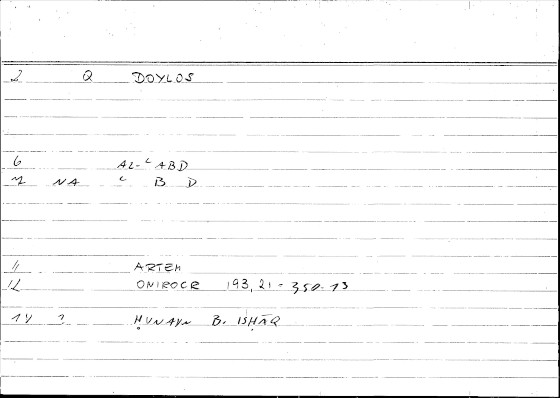 2 Q DOYLOS
6 AL-ʿABD
NA ʿ B D
11 ARTEM
12 ONIROCR 193, 21 = 350.13
14 ? ḤUNAYN B. ISḤĀQ